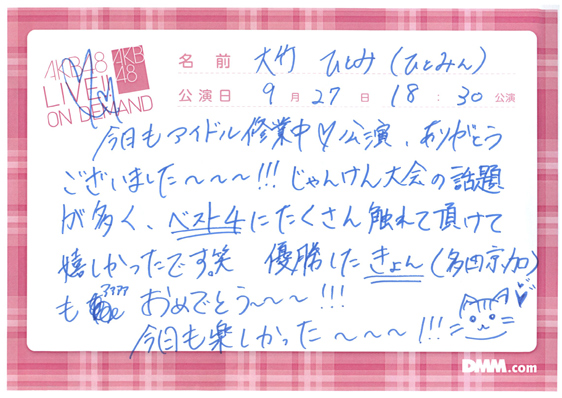 AKB48
LIVE!!
ON DEMAND
AKB
48
名前 大竹 ひとみ (ひとみん)
公演日 9月27日 18:30公演
今日もアイドル修業中♡公演、ありがとう
ございました〜〜〜!!! じゃんけん大会の話題
が多く、ベスト4にたくさん触れて頂けて
嬉しかったです。笑 優勝したきょん(多田京加)
も おめでとう〜〜〜!!!
今日も楽しかった〜〜〜!!!
DMM.com